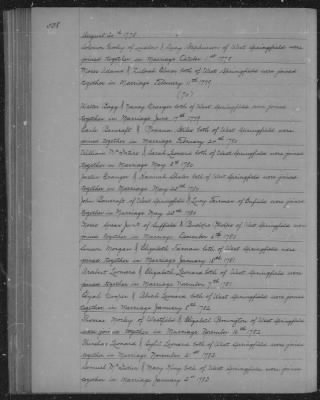 August 20th 1778
of & Lucy Stephenson of West Springfield were
joined together in Marriage October 1st 1778
Moses Adams & both of West Springfield were
joined together in Marriage February 1779
Walter & Nancy Granger both of West Springfield were joined
together in Marriage June 17th 1779
Earls Bancroft & Roxanna both of West Springfield were
joined together in Marriage February 24th 1780
William & Sarah Leonard both of West Springfield were joined
together in Marriage May 8th 1780
Justin Granger & Hannah both of West Springfield were joined
together in Marriage May 25th 1780
John Bancroft of West Springfield & Lucy of Enfield were joined
together in Marriage May 25th 1780
Moses of Suffield & Phelps of West Springfield were
joined together in Marriage December 6th 1780
Morgan & Elizabeth both of West Springfield were
joined together in Marriage January 18th 1781
Leonard & Elizabeth Leonard both of West Springfield were
joined together in Marriage November 7th 1781
Elijah & Leonard both of West Springfield were joined
together in Marriage January 8th 1782
Thomas Morley of Westfield & Elizabeth of West Springfield
were joined together in Marriage November 16th 1782
Leonard & Sybil Leonard both of West Springfield were joined
together in Marriage November 21st 1782
Samuel & Mary King both of West Springfield were joined
together in Marriage January 2nd 1783